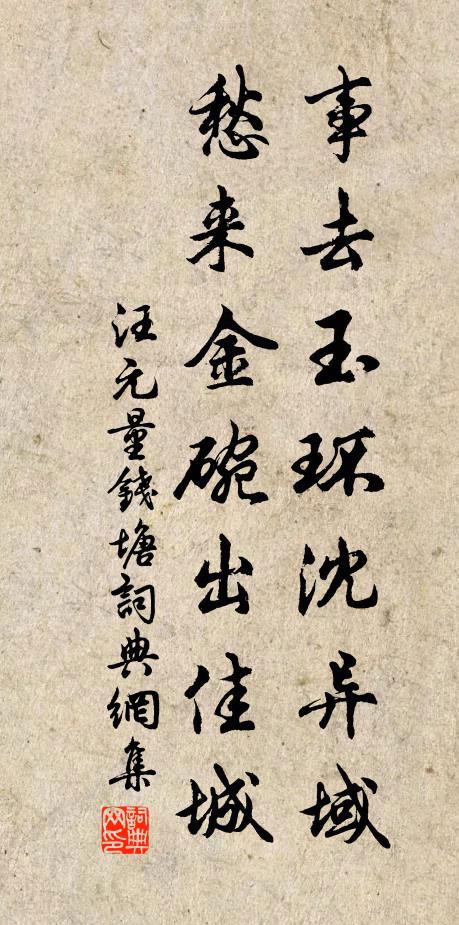 事去玉环沈异域
愁来金碗出佳城
汪元量錢塘詞典網集
詞典網印